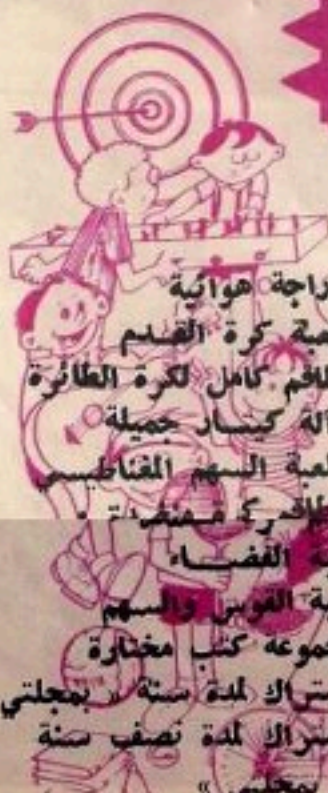 راجة هوائية
عبة كرة القدم
طاقم كامل لكرة الطائرة
الة كيتار جميلة
لعبة السهم المغناطيسي
منضدة
ة الفضاء
ة القوس والسهم
موعه كتب مختارة
تراك لمدة سنة « بمجلتي
تراك لمدة نصف سنة
بمجلتي »